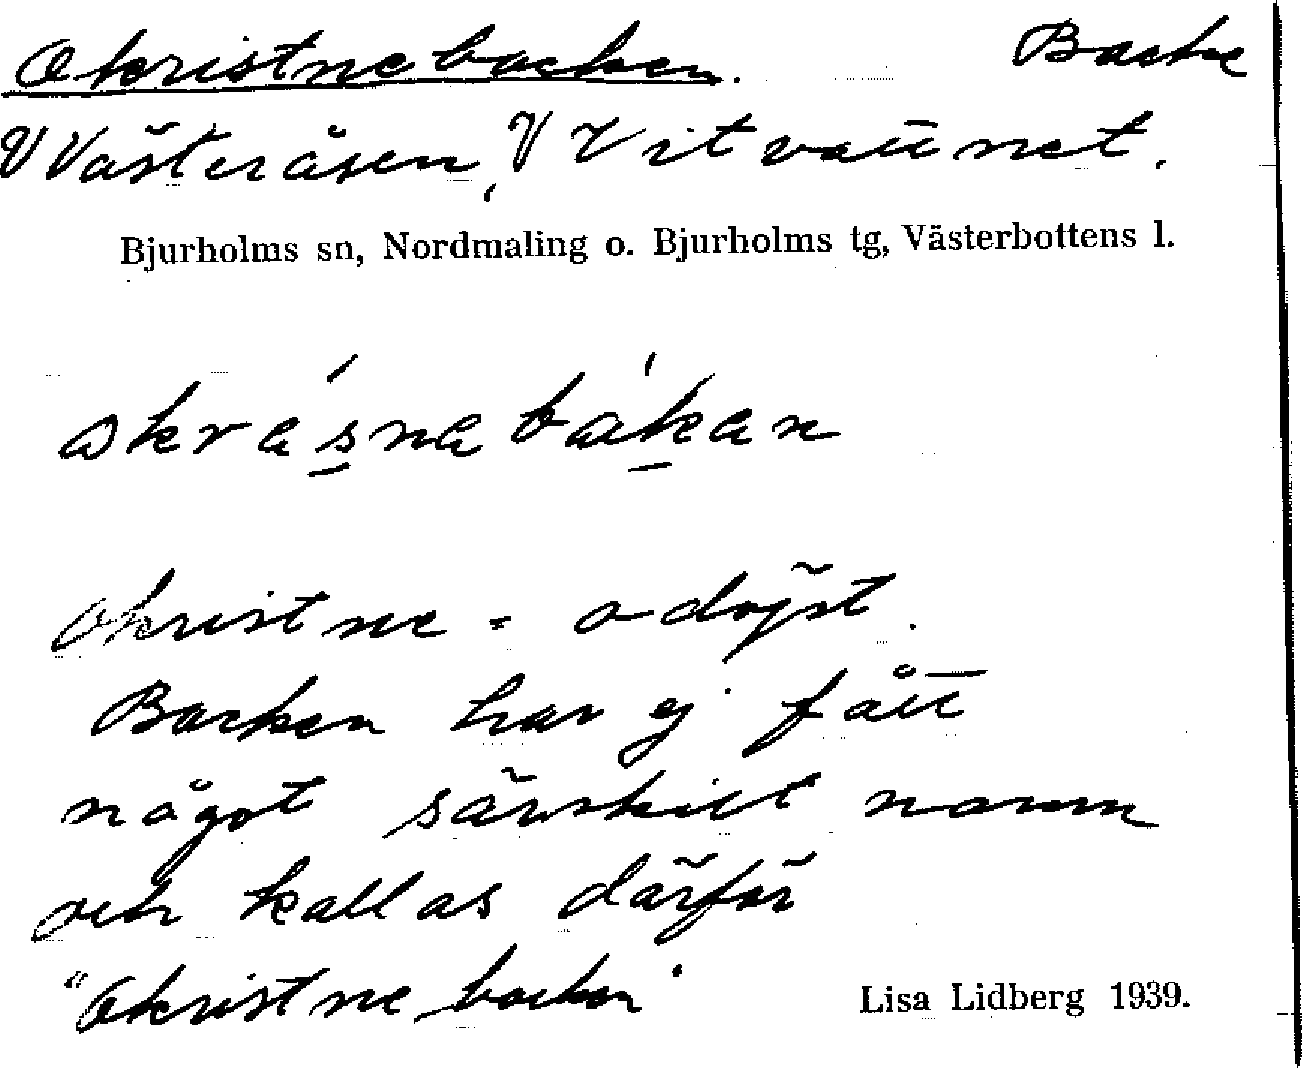 Okristnebacken. Backe
V Västeråsen, V Vitvattnet.
Bjurholms sn, Nordmaling o. Bjurholms tg, Västerbottens l.
okristne = odöpt.
Backen har ej fått
något särskilt namn
och kallas därför
"Okristne backen"
Lisa Lidberg 1939.